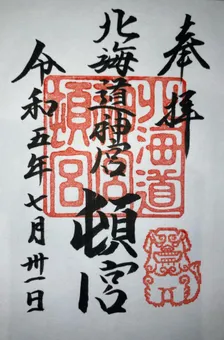 奉拝
北海道神宮頓宮
北海道
神宮
頓宮
令和五年七月卅一日